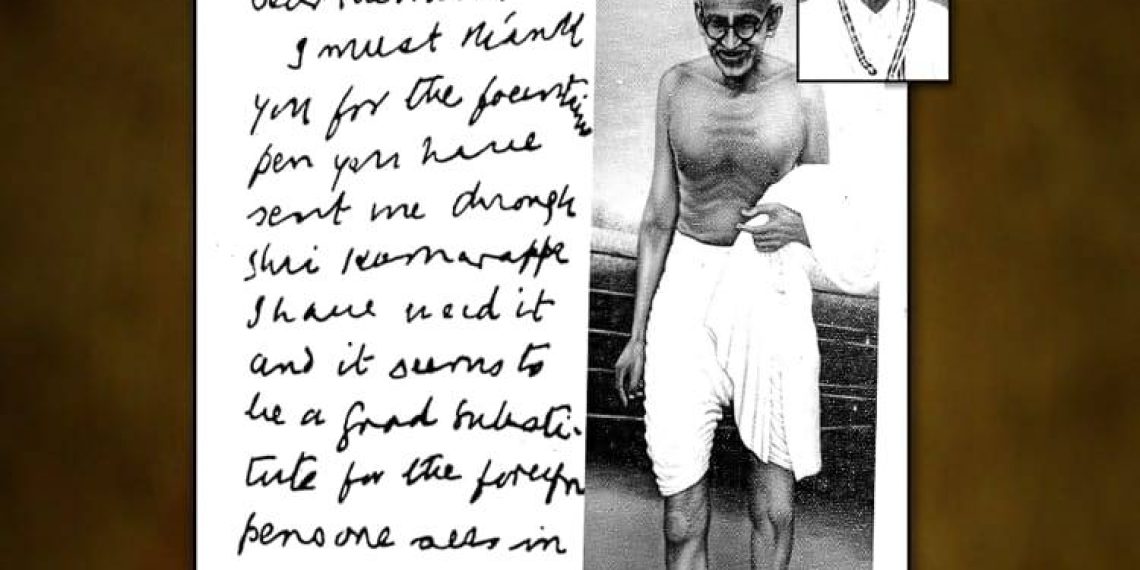 I must thank
you for the fountain
pen you have
sent me through
Shri Kumarappa
I have used it
and it seems to
be a good substi-
tute for the foreign
pens one sees in